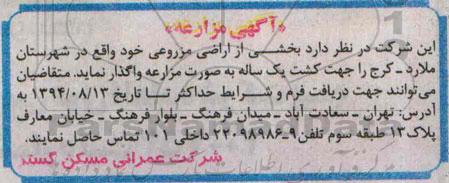 «آگهی مزارعه»
این شرکت در نظر دارد بخشی از اراضی مزروعی خود واقع در شهرستان
ملارد ـ کرج را جهت کشت یک ساله به صورت مزارعه واگذار نماید. متقاضیان
می‌توانند جهت دریافت فرم و شرایط حداکثر تا تاریخ ۱۳۹۴/۰۸/۱۳ به
آدرس: تهران ـ سعادت آباد ـ میدان فرهنگ ـ بلوار فرهنگ ـ خیابان معارف
پلاک ۱۳ طبقه سوم تلفن ۹ـ۲۲۰۹۸۹۸۶ داخلی ۱۰۱ تماس حاصل نمایند.
شرکت عمرانی مسکن گستر